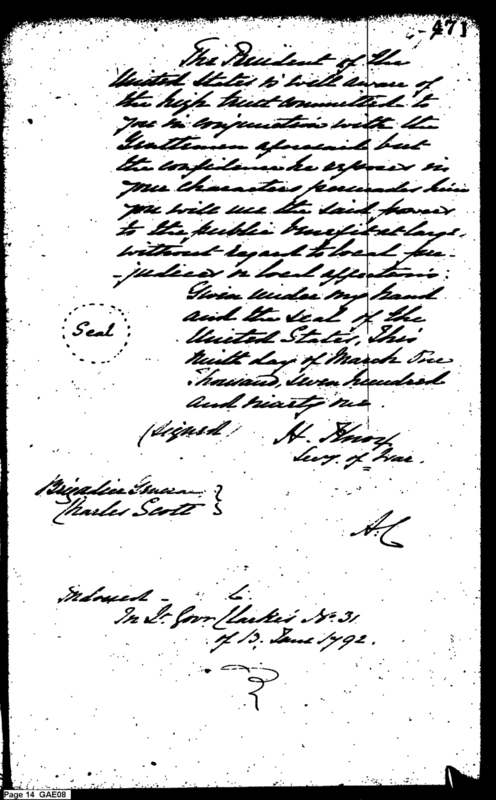 471
The President of the
United States is well aware of
the high trust committed to
you in conjunction with the
Gentlemen aforesaid but
the confidence he reposes in
your characters persuades him
you will use the said powers
to the public benefit at large,
without regard to local pre
-judices or local affections:
Given under my hand
and the seal of the
United States, this
ninth day of March One
Thousand, seven hundred
and ninety one.
Seal
(signed) H. Knox
Secy of War.
Brigadier General }
Charles Scott }
Indorsed -
In Lt. Govr Clarke's No. 31
of 13. June 1792.
Page 14 GAE08